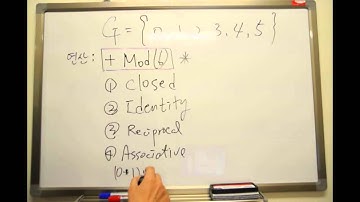 G = { 0, 1, 2, 3, 4, 5 }
연산: + Mod(6) *
① Closed
② Identity
③ Reciprocal
④ Associative